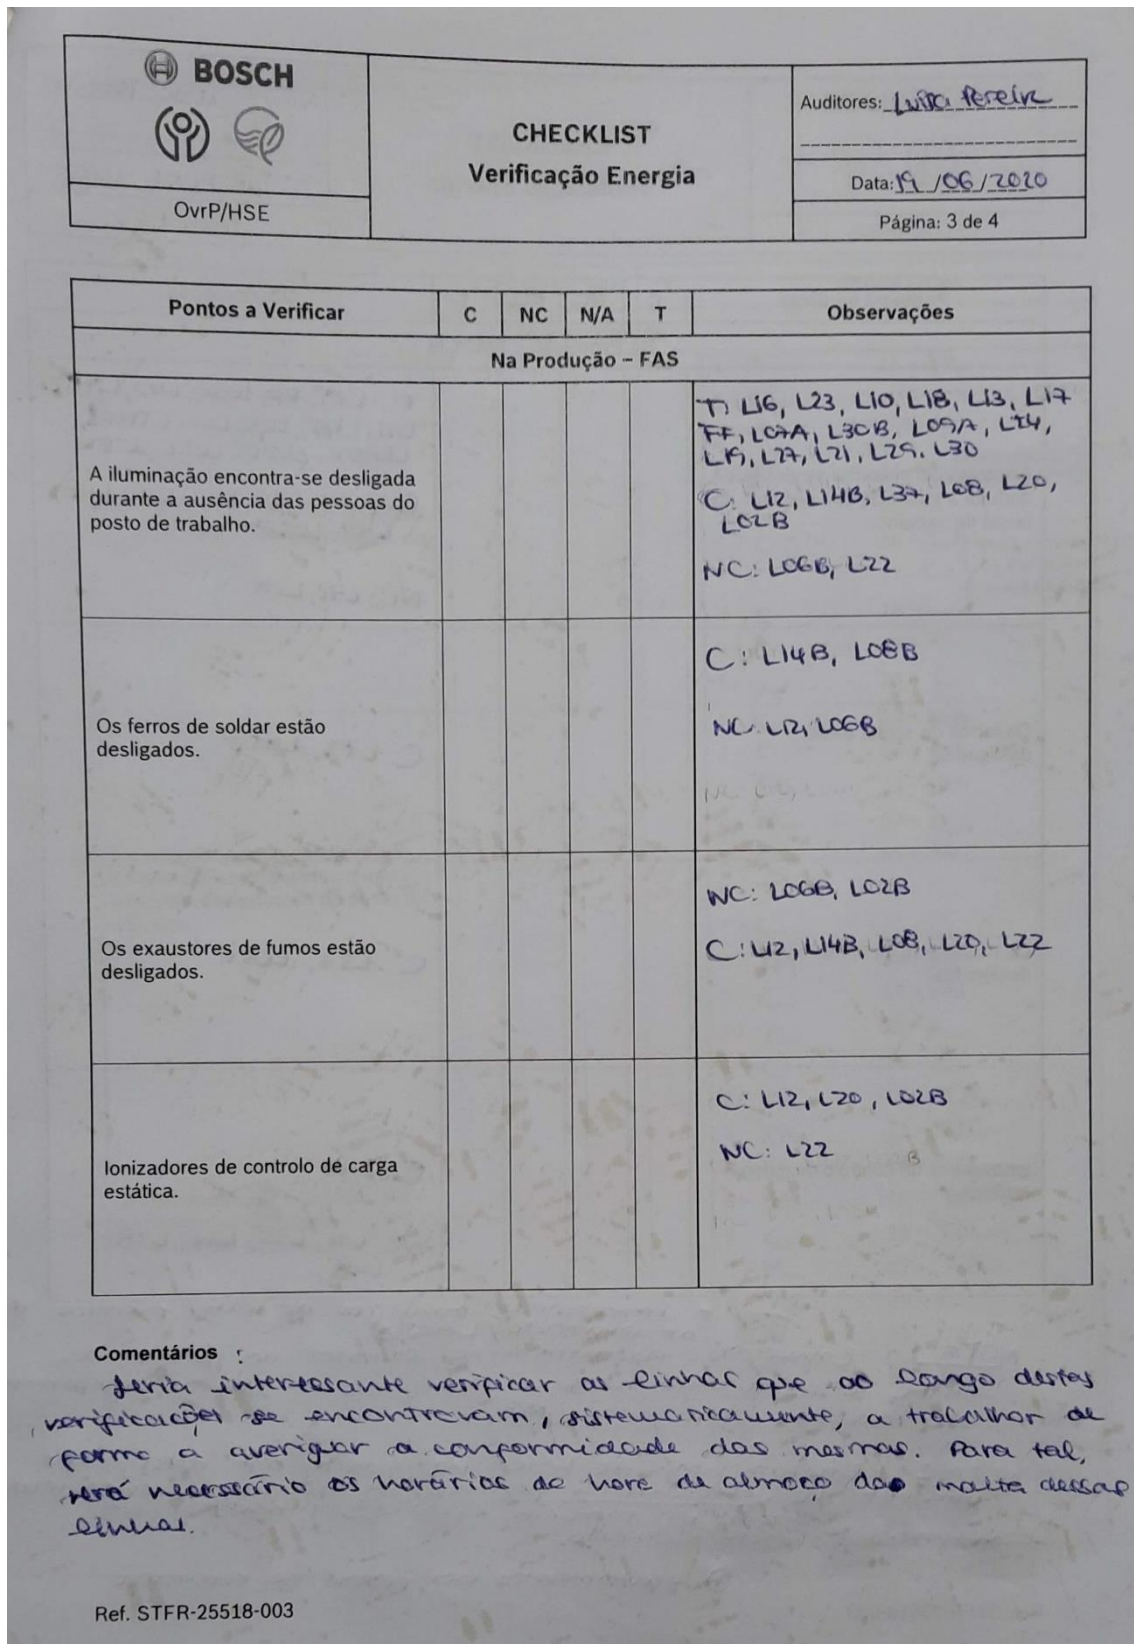 BOSCH
OvrP/HSE
CHECKLIST
Verificação Energia
Auditores: Luísa Pereira
Data: 19/06/2020
Página: 3 de 4
Pontos a Verificar C NC N/A T Observações
Na Produção – FAS
A iluminação encontra-se desligada
durante a ausência das pessoas do
posto de trabalho.
T: L16, L23, L10, L18, L13, L17
FF, L07A, L30B, L09A, L24,
L19, L27, L21, L29, L30
C: L12, L14B, L37, L08, L20,
L02B
NC: L06B, L22
Os ferros de soldar estão
desligados.
C: L14B, L08B
NC: L12, L06B
Os exaustores de fumos estão
desligados.
NC: L06B, L02B
C: L12, L14B, L08, L20, L22
Ionizadores de controlo de carga
estática.
C: L12, L20, L02B
NC: L22
Comentários :
Seria interessante verificar as linhas que ao longo destas
verificações se encontravam, sistematicamente, a trabalhar de
forma a averiguar a conformidade das mesmas. Para tal,
será necessário os horários de hora de almoço da malta dessas
linhas.
Ref. STFR-25518-003